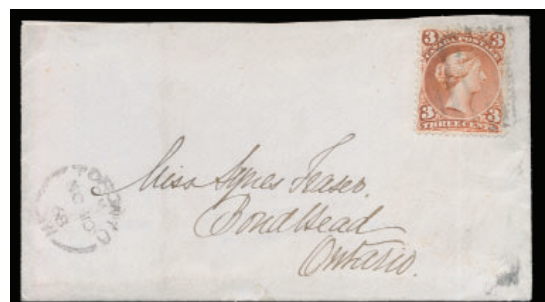 3 CANADA POSTAGE 3
3 3
THREE CENTS
TORONTO
Miss Agnes Fraser.
Bond Head
Ontario.